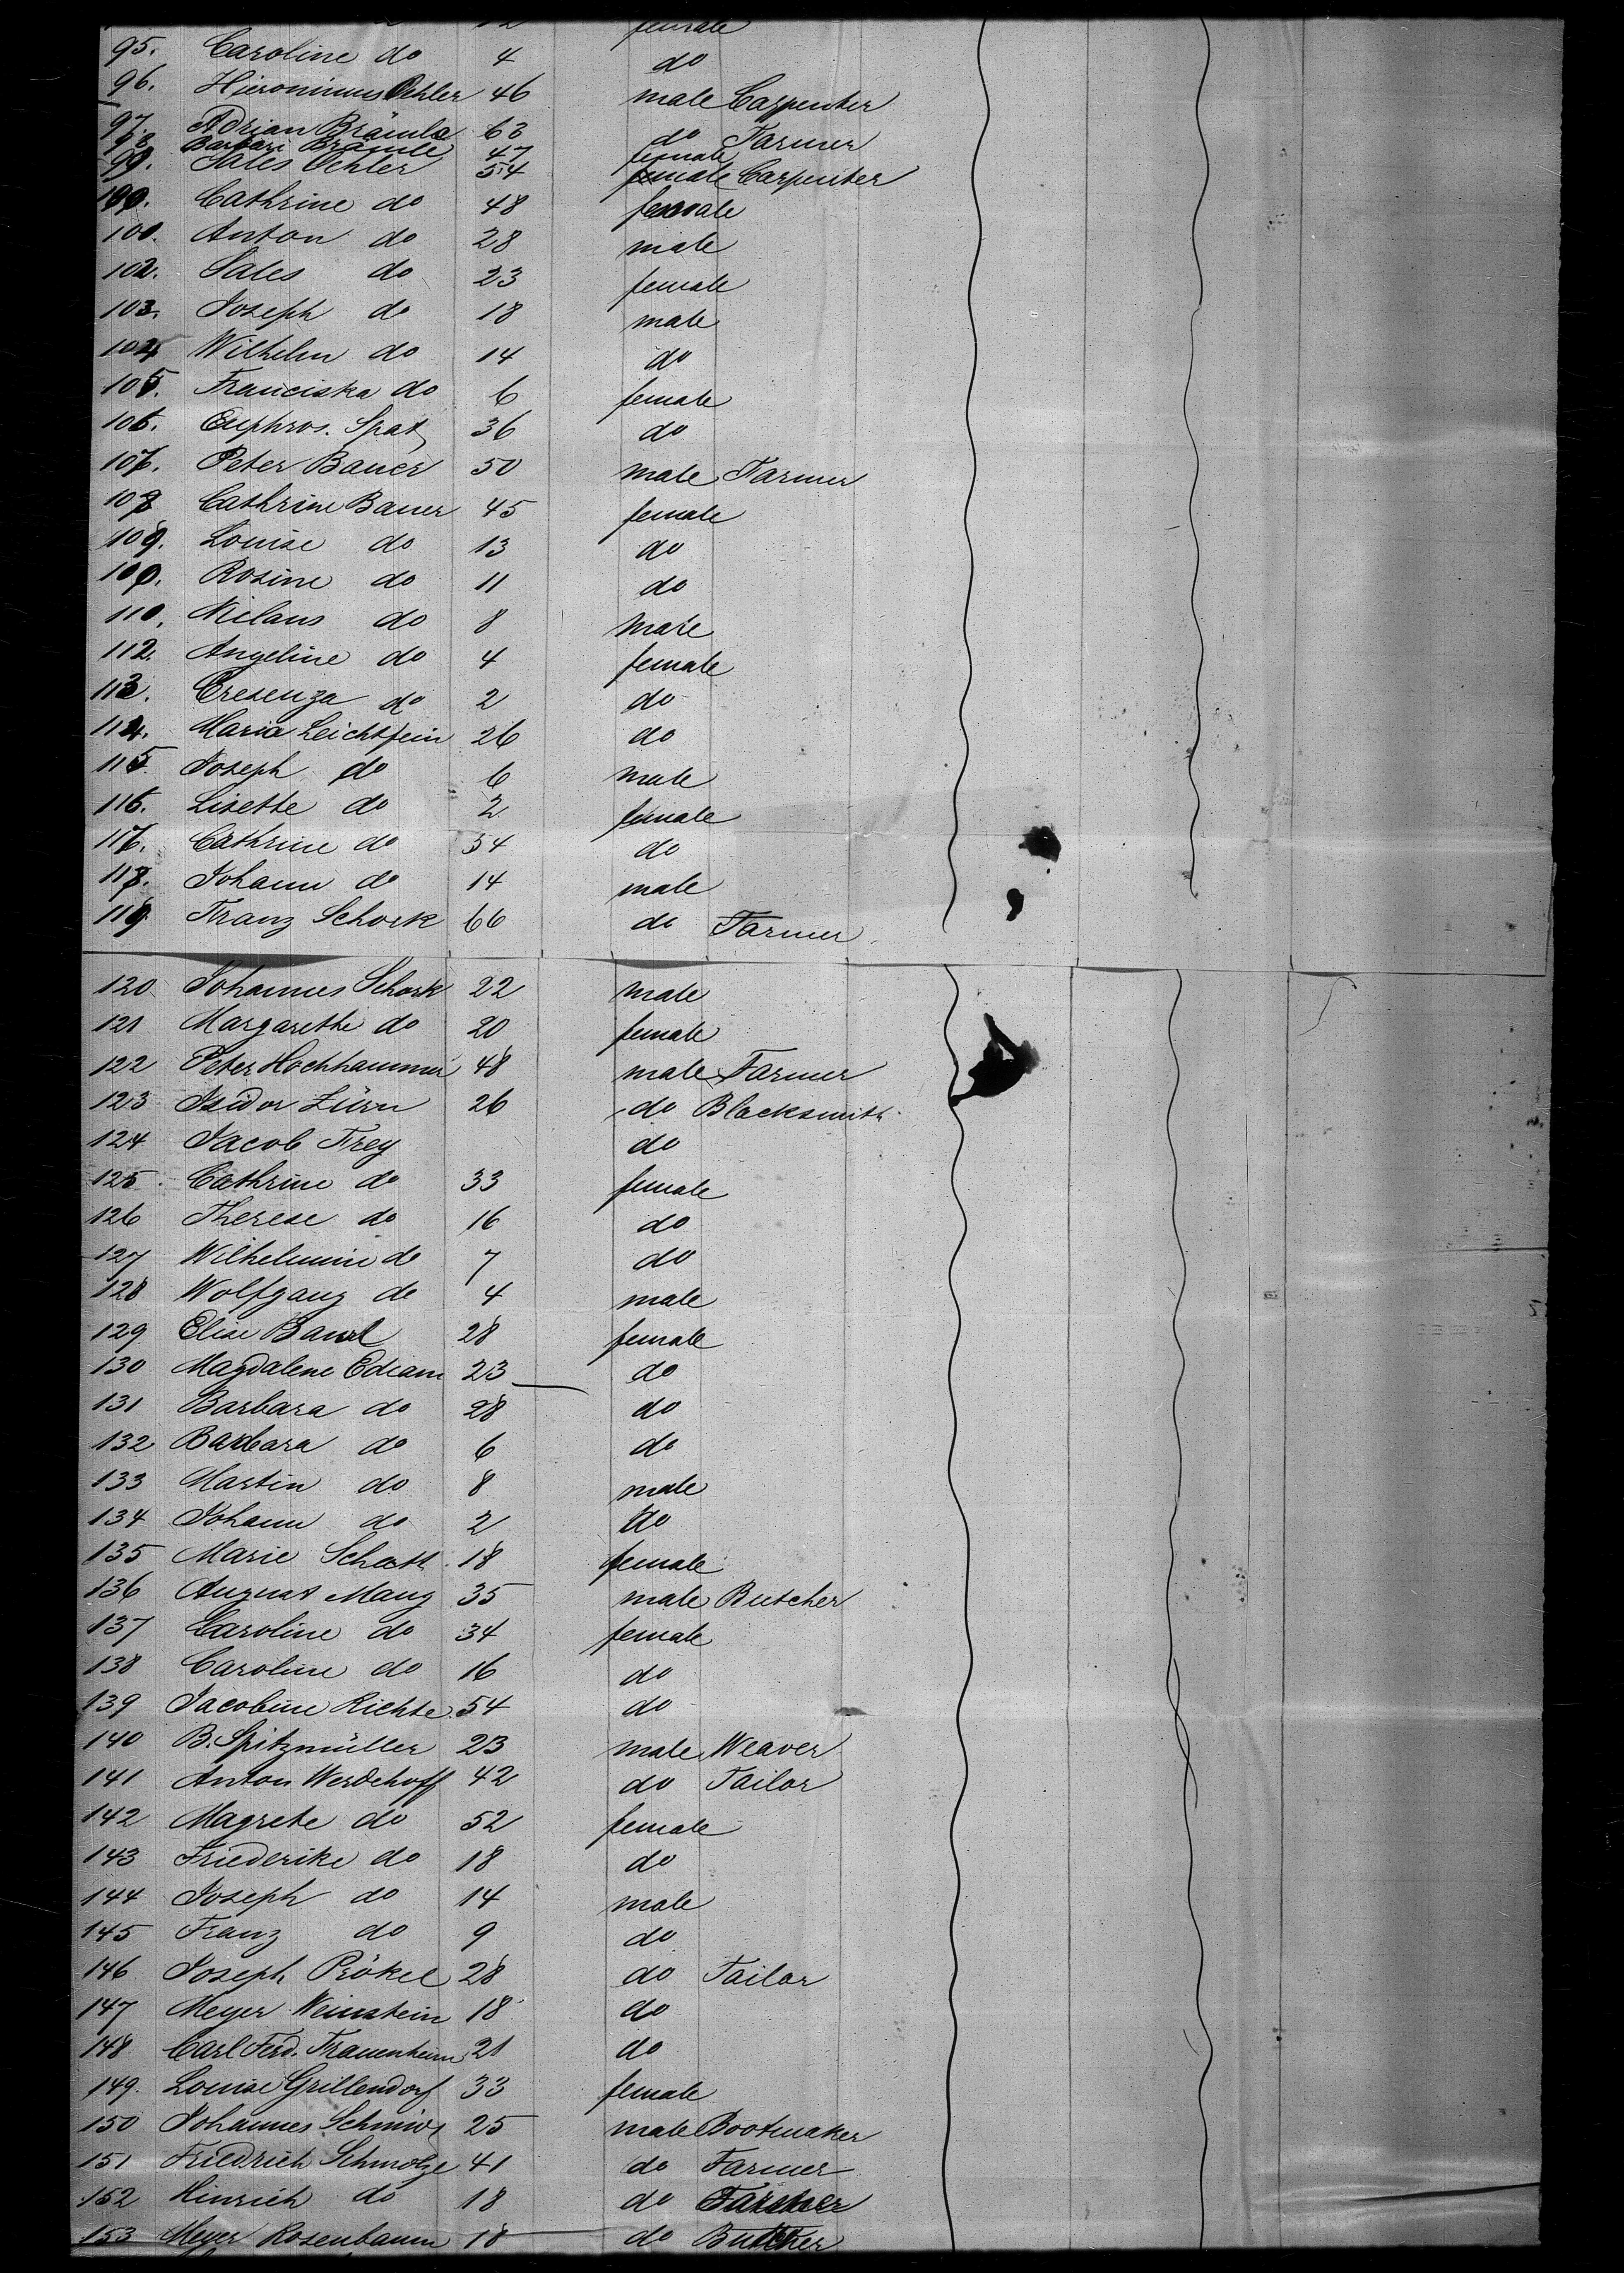 12 female
95. Caroline do 4 do
96. Hieronimus Oehler 46 male Carpenter
97. Adrian Brämle 63 do Farmer
98 Barbara Brämle 47 female
99. Sales Oehler 54 male Carpenter
100. Cathrine do 48 female
101. Anton do 28 male
102. Sales do 23 female
103. Joseph do 18 male
104 Wilhelm do 14 do
105. Franciska do 6 female
106. Euphros. Spatz 36 do
107. Peter Bauer 50 male Farmer
108 Cathrine Bauer 45 female
109. Louise do 13 do
110. Rosine do 11 do
111. Niclaus do 8 male
112. Angeline do 4 female
113. Cresenza do 2 do
114. Maria Leichtfein 26 do
115. Joseph do 6 male
116. Lisette do 2 female
117. Cathrine do 54 do
118. Johann do 14 male
119 Franz Schork 66 do Farmer
120 Johannes Schork 22 male
121 Margarethe do 20 female
122 Peter Hochhammer 48 male Farmer
123 Isidor Zürn 26 do Blacksmith
124 Jacob Frey do
125 Cathrine do 33 female
126 Therese do 16 do
127 Wilhelmine do 7 do
128 Wolfgang do 4 male
129 Elise 28 female
130 Magdalene 23 do
131 Barbara do 28 do
132 Barbara do 6 do
133 Martin do 8 male
134 Johann do 2 do
135 Marie Schott 18 female
136 August Mang 35 male Butcher
137 Caroline do 34 female
138 Caroline do 16 do
139 Jacobine Richte 54 do
140 B. Spitzmüller 23 male Weaver
141 Anton Werdehoff 42 do Tailor
142 Magrete do 52 female
143 Friederike do 18 do
144 Joseph do 14 male
145 Franz do 9 do
146 Joseph Prökel 28 do Tailor
147 Meyer Weinstein 18 do
148 Carl Ferd. Frauenheim 21 do
149. Louise Grillendorf 33 female
150 Johannes Schmidt 25 male Bootmaker
151 Friedrich Schmolze 41 do Farmer
152 Hinrich do 18 do
153 Meyer Rosenbaum 18 do Butcher